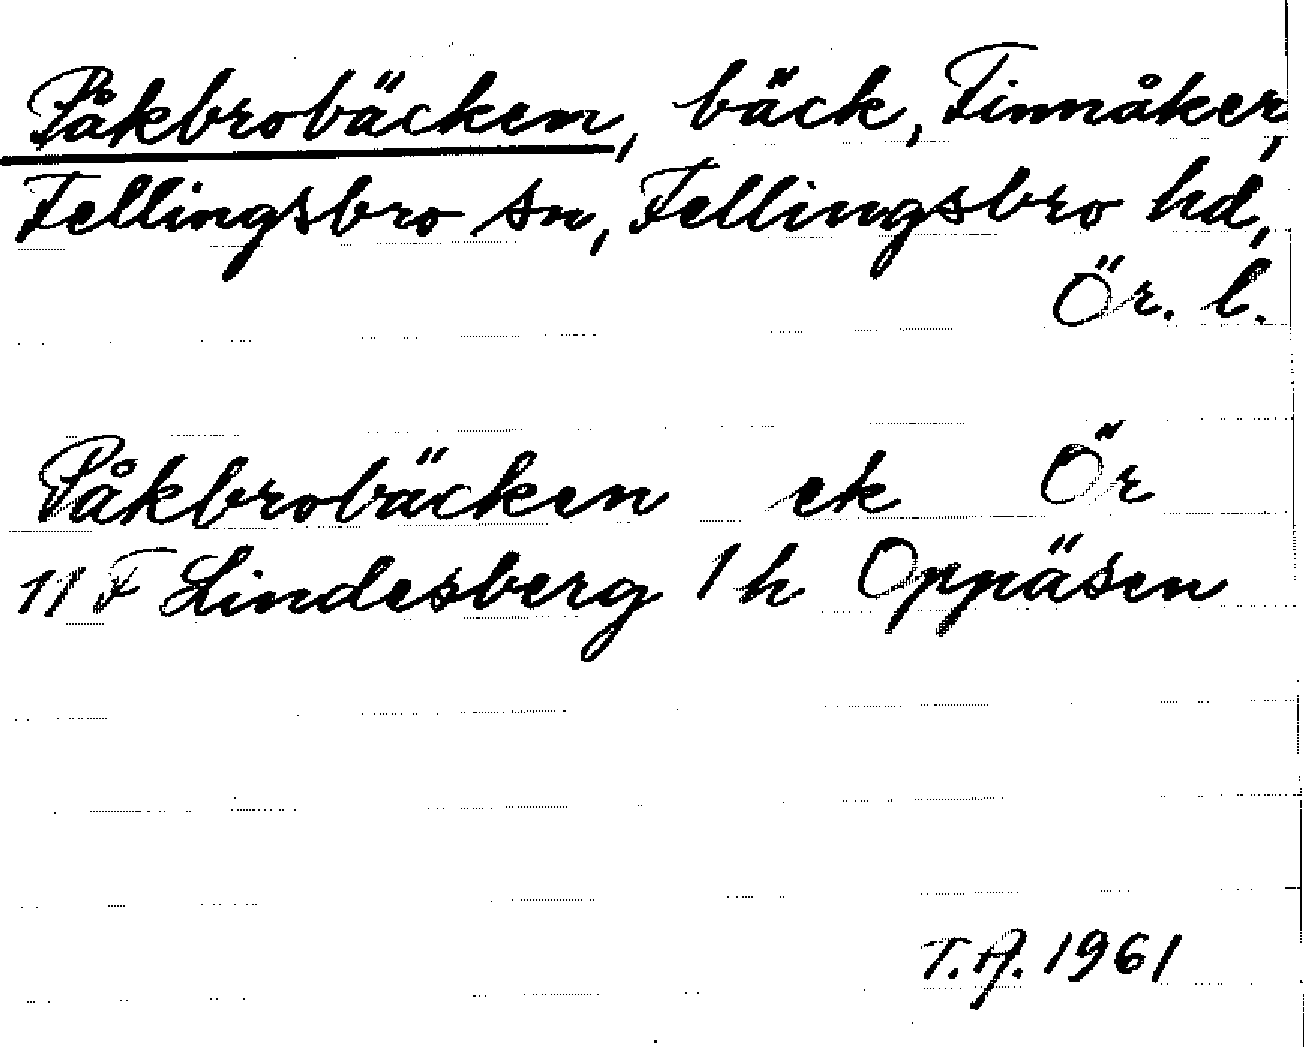 Påkbrobäcken, bäck, Finnåker,
Fellingsbro sn, Fellingsbro hd,
Ör. l.
Påkbrobäcken ek Ör
11 F Lindesberg 1 h Oppåsen
T.A. 1961